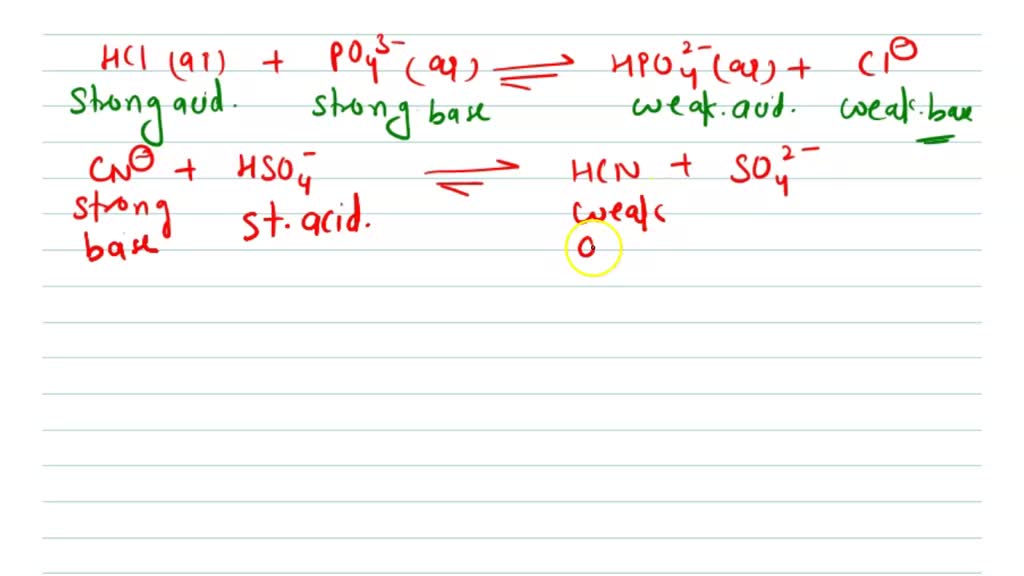 HCl (aq) + PO₄³⁻ (aq) ⇌ HPO₄²⁻ (aq) + Cl⊖
Strong acid. strong base weak.acid. weak.base
CN⊖ + HSO₄⁻ ⇌ HCN + SO₄²⁻
strong st.acid. weak
base